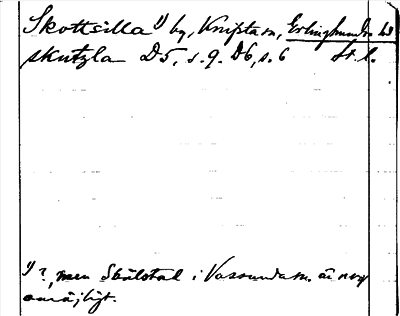 Skottsilla 1) by, Knifsta sn, Erlinghundra hd
skutzla D5, s. 9. D6, s. 6 St. l.
1) ?, men Skälstal i Vassunda sn. är nog
omöjligt.